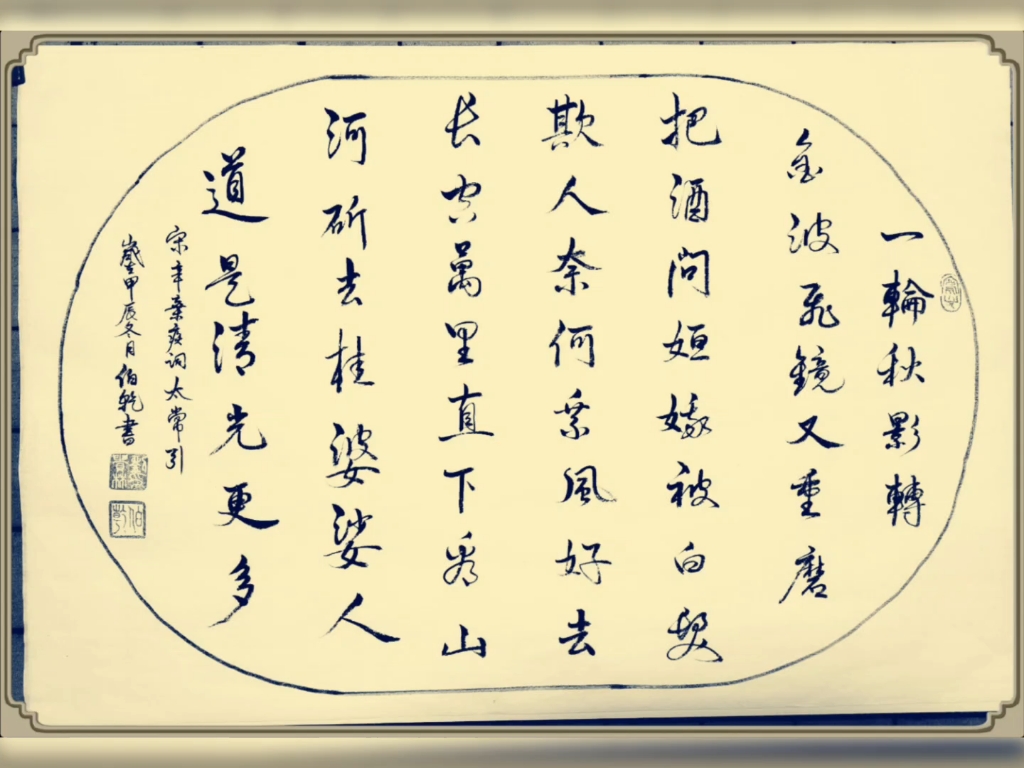 一輪秋影轉
金波飛鏡又重磨
把酒問姮娥被白髮
欺人奈何乘風好去
长空萬里直下看山
河斫去桂婆娑人
道是清光更多
宋辛棄疾詞太常引
歲在甲辰冬月伯乾書
伯乾